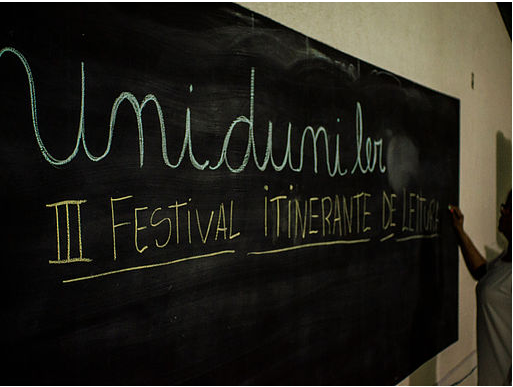 Uniduniler
III FESTIVAL ITINERANTE DE LEITURA